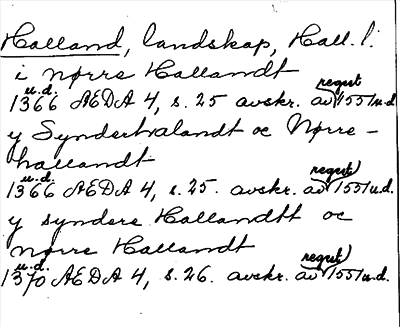 Halland, landskap, Hall. l.
i nørre Hallandt
1366 u.d. AEDA 4, s. 25 avskr. av regest 1551 u.d.
y Synderhalandt oc Nørre-
hallandt
1366 u.d. AEDA 4, s. 25. avskr. av regest 1551 u.d.
y syndere Hallandtt oc
nørre Hallandt
1370 u.d. AEDA 4, s. 26. avskr. av regest 1551 u.d.